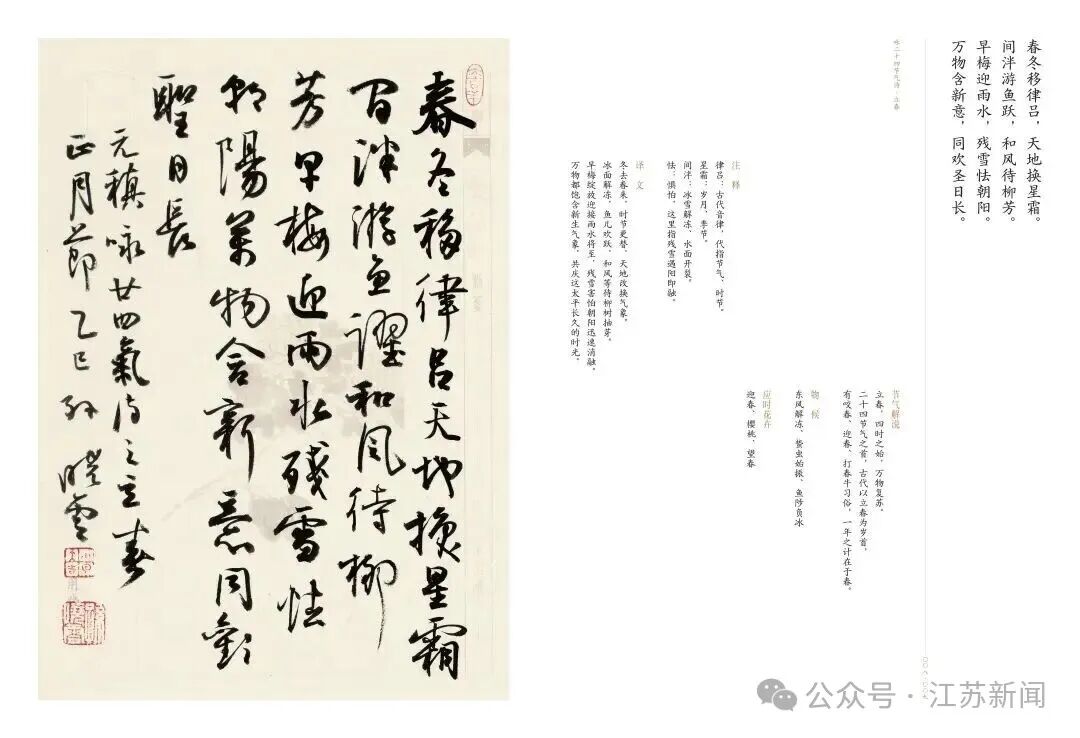 春冬移律吕天地換星霜
間泮游魚躍和風待柳
芳早梅迎雨水殘雪怯
朝陽萬物含新意同歡
聖日長
元稹咏廿四氣诗之立春
正月節 乙巳 孙曉雲
春冬移律吕，天地换星霜。
间泮游鱼跃，和风待柳芳。
早梅迎雨水，残雪怯朝阳。
万物含新意，同欢圣日长。
咏二十四节气诗·立春
注 释
律吕：古代音律，代指节气、时节。
星霜：岁月、季节。
间泮：冰雪解冻、水面开裂。
怯：惧怕，这里指残雪遇阳即融。
译 文
冬去春来，时节更替，天地改换气象，
冰面解冻，鱼儿欢跃，和风等待柳树抽芽。
早梅绽放迎接雨水将至，残雪害怕朝阳迅速消融。
万物都饱含新生气象，共庆这太平长久的时光。
节气解说
立春，四时之始，万物复苏。
二十四节气之首，古代以立春为岁首，
有咬春、迎春、打春牛习俗，一年之计在于春。
物 候
东风解冻、蛰虫始振、鱼陟负冰
应时花卉
迎春、樱桃、望春
公众号·江苏新闻